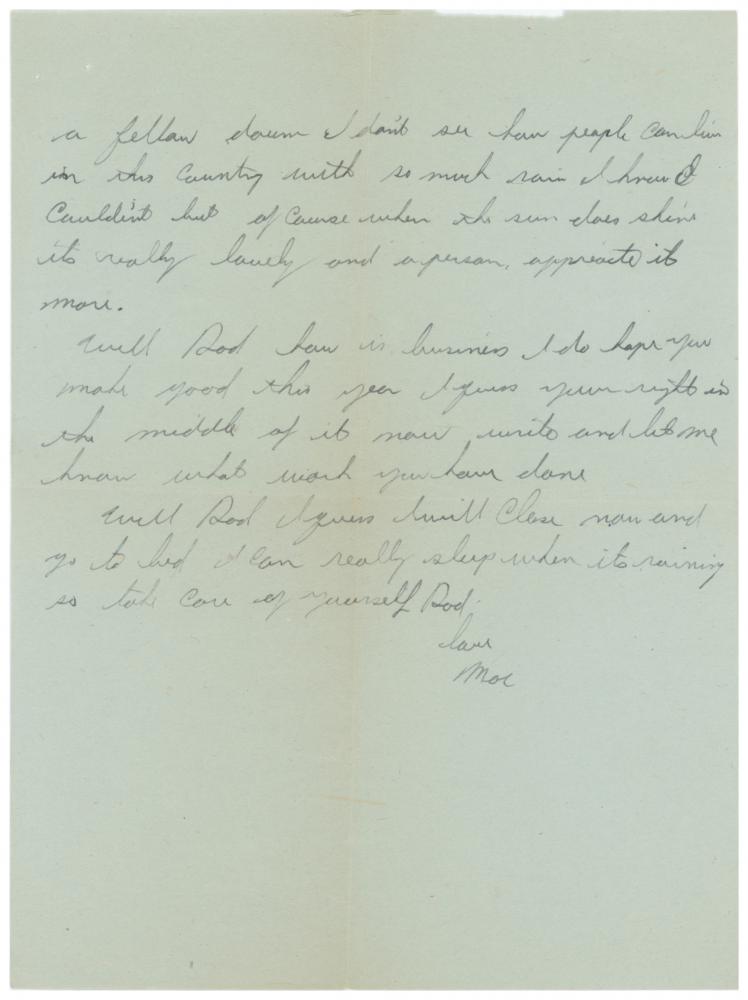 a fellow down I don't see how people can live
in this country with so much rain I know I
Couldn't but of Course when the sun does shine
its really lovely and a person, appreacte it
more.
Well Dad how is business I do hope you
make good this year I guess your right in
the middle of it now write and let me
know what work you have done
Well Dad I guess I will Close now and
go to bed I can really sleep when its raining
so take care of yourself Dad.
love
Moe